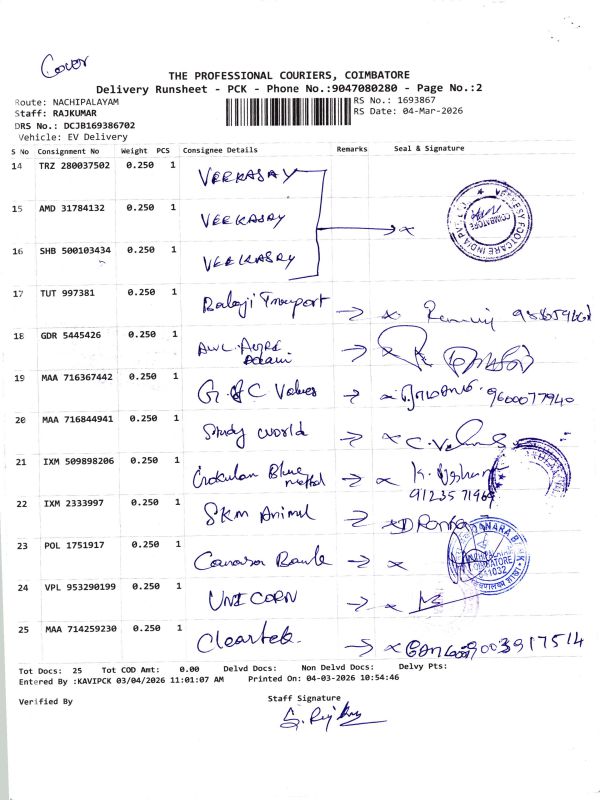 Cover
THE PROFESSIONAL COURIERS, COIMBATORE
Delivery Runsheet - PCK - Phone No.:9047080280 - Page No.:2
Route: NACHIPALAYAM
RS No.: 1693867
Staff: RAJKUMAR
RS Date: 04-Mar-2026
DRS No.: DCJB169386702
Vehicle: EV Delivery
S No Consignment No Weight PCS Consignee Details Remarks Seal & Signature
14 TRZ 280037502 0.250 1 VEEKASAY
15 AMD 31784132 0.250 1 VEEKASAY x
16 SHB 500103434 0.250 1 VEEKASAY
17 TUT 997381 0.250 1 Balaji Transport x
18 GDR 5445426 0.250 1 AWL Agri Adani x
19 MAA 716367442 0.250 1 G.B.C Values x 9600077940
20 MAA 716844941 0.250 1 Study world x
21 IXM 509898206 0.250 1 Blue Method x K.
22 IXM 2333997 0.250 1 SKM Animal x
23 POL 1751917 0.250 1 Canara Bank x
24 VPL 953290199 0.250 1 UNICORN x
25 MAA 714259230 0.250 1 Cleartek x 9003917514
Tot Docs: 25 Tot COD Amt: 0.00 Delvd Docs: Non Delvd Docs: Delvy Pts:
Entered By :KAVIPCK 03/04/2026 11:01:07 AM Printed On: 04-03-2026 10:54:46
Verified By
Staff Signature